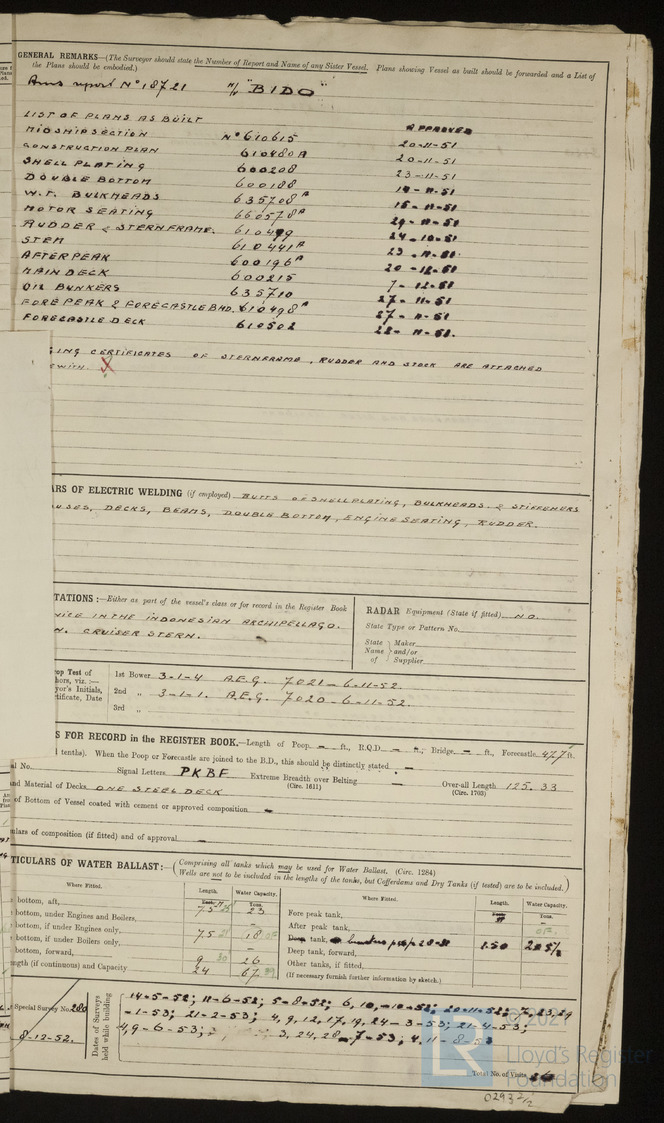 GENERAL REMARKS—(The Surveyor should state the Number of Report and Name of any Sister Vessel. Plans showing Vessel as built should be forwarded and a List of
the Plans should be embodied.)
report No 18721 M/V "BIDO"
LIST OF PLANS AS BUILT APPROVED
MIDSHIPSECTION No 610615 20-11-51
CONSTRUCTION PLAN 610480A 20-11-51
SHELL PLATING 600208 23-11-51
DOUBLE BOTTOM 600188
W.T. BULKHEADS 635708A
MOTOR SEATING 660578A
RUDDER & STERNFRAME. 24-10-51
STEM 610441A
AFTERPEAK 600196A
MAIN DECK 600215
OIL BUNKERS 635710
FOREPEAK & FORECASTLE BHD. 610498A 27-11-51
FORECASTLE DECK 610502
ING CERTIFICATES OF STERNFRAME, RUDDER AND STOCK ARE ATTACHED
WITH. X
ARS OF ELECTRIC WELDING (if employed) BUTTS OF SHELLPLATING, BULKHEADS & STIFFENERS
USES, DECKS, BEAMS, DOUBLE BOTTOM, ENGINE SEATING, RUDDER.
TATIONS :—Either as part of the vessel's class or for record in the Register Book
VICE IN THE INDONESIAN ARCHIPELLAGO.
N. CRUISER STERN.
RADAR Equipment (State if fitted) NO.
State Type or Pattern No.
State Maker
Name and/or
of Supplier
op Test of
hors, viz.:—
yor's Initials,
rtificate, Date
1st Bower 3-1-4 A.E.G. 7021-6-11-52.
2nd „ 3-1-1. A.E.G. 7020-6-11-52.
3rd „
S FOR RECORD in the REGISTER BOOK.—Length of Poop - ft., R.Q.D. - ft., Bridge - ft., Forecastle 47.7 ft.
tenths). When the Poop or Forecastle are joined to the B.D., this should be distinctly stated -
al No. Signal Letters PKBF Extreme Breadth over Belting - Over-all Length 125.33
(Circ. 1611) (Circ. 1703)
and Material of Decks ONE STEEL DECK
of Bottom of Vessel coated with cement or approved composition -
ulars of composition (if fitted) and of approval -
TICULARS OF WATER BALLAST:— (Comprising all tanks which may be used for Water Ballast, (Circ. 1284)
Wells are not to be included in the lengths of the tanks, but Cofferdams and Dry Tanks (if tested) are to be included.)
Where Fitted. Length. Water Capacity. Where Fitted. Length. Water Capacity.
Tons. Tons.
bottom, aft, 7.5 23 Fore peak tank, -
bottom, under Engines and Boilers, - After peak tank,
bottom, if under Engines only, 7.5 18 tank,
bottom, if under Boilers only, - Deep tank, forward,
bottom, forward, 9 26 Other tanks, if fitted,
ngth (if continuous) and Capacity 24 67 (If necessary furnish further information by sketch.)
Special Survey No.
8-12-52.
Dates of Surveys
held while building
14-5-52; 11-6-52; 5-8-52; 20-11-52;
-1-53; 21-2-53; 4, 9, 12, 17, 19, 24-3-53; 21-4-53;
4, 9-6-53; 3, 24, 28-7-53; 4, 11-8-53
Total No. of Visits 26
© 2021
LR
Lloyd's Register
Foundation
0293 2/2